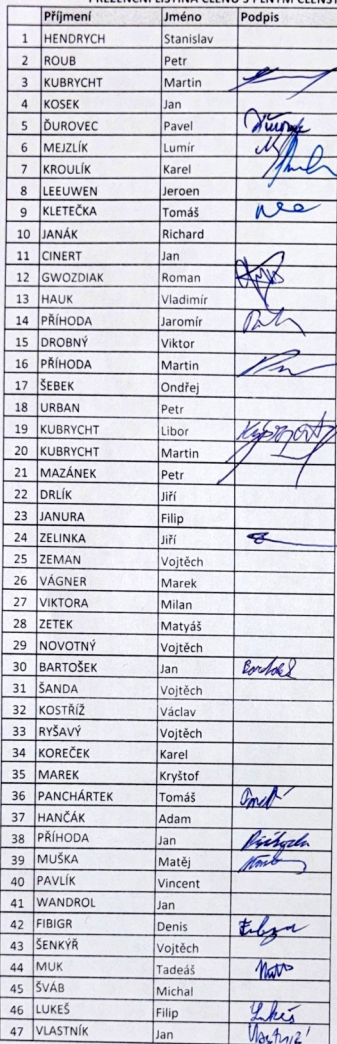 Příjmení Jméno Podpis
1 HENDRYCH Stanislav
2 ROUB Petr
3 KUBRYCHT Martin
4 KOSEK Jan
5 ĎUROVEC Pavel
6 MEJZLÍK Lumír
7 KROULÍK Karel
8 LEEUWEN Jeroen
9 KLETEČKA Tomáš
10 JANÁK Richard
11 CINERT Jan
12 GWOZDIAK Roman
13 HAUK Vladimír
14 PŘÍHODA Jaromír
15 DROBNÝ Viktor
16 PŘÍHODA Martin
17 ŠEBEK Ondřej
18 URBAN Petr
19 KUBRYCHT Libor
20 KUBRYCHT Martin
21 MAZÁNEK Petr
22 DRLÍK Jiří
23 JANURA Filip
24 ZELINKA Jiří
25 ZEMAN Vojtěch
26 VÁGNER Marek
27 VIKTORA Milan
28 ZETEK Matyáš
29 NOVOTNÝ Vojtěch
30 BARTOŠEK Jan
31 ŠANDA Vojtěch
32 KOSTŘÍŽ Václav
33 RYŠAVÝ Vojtěch
34 KOREČEK Karel
35 MAREK Kryštof
36 PANCHÁRTEK Tomáš
37 HANČÁK Adam
38 PŘÍHODA Jan
39 MUŠKA Matěj
40 PAVLÍK Vincent
41 WANDROL Jan
42 FIBIGR Denis
43 ŠENKÝŘ Vojtěch
44 MUK Tadeáš
45 ŠVÁB Michal
46 LUKEŠ Filip Lukeš
47 VLASTNÍK Jan